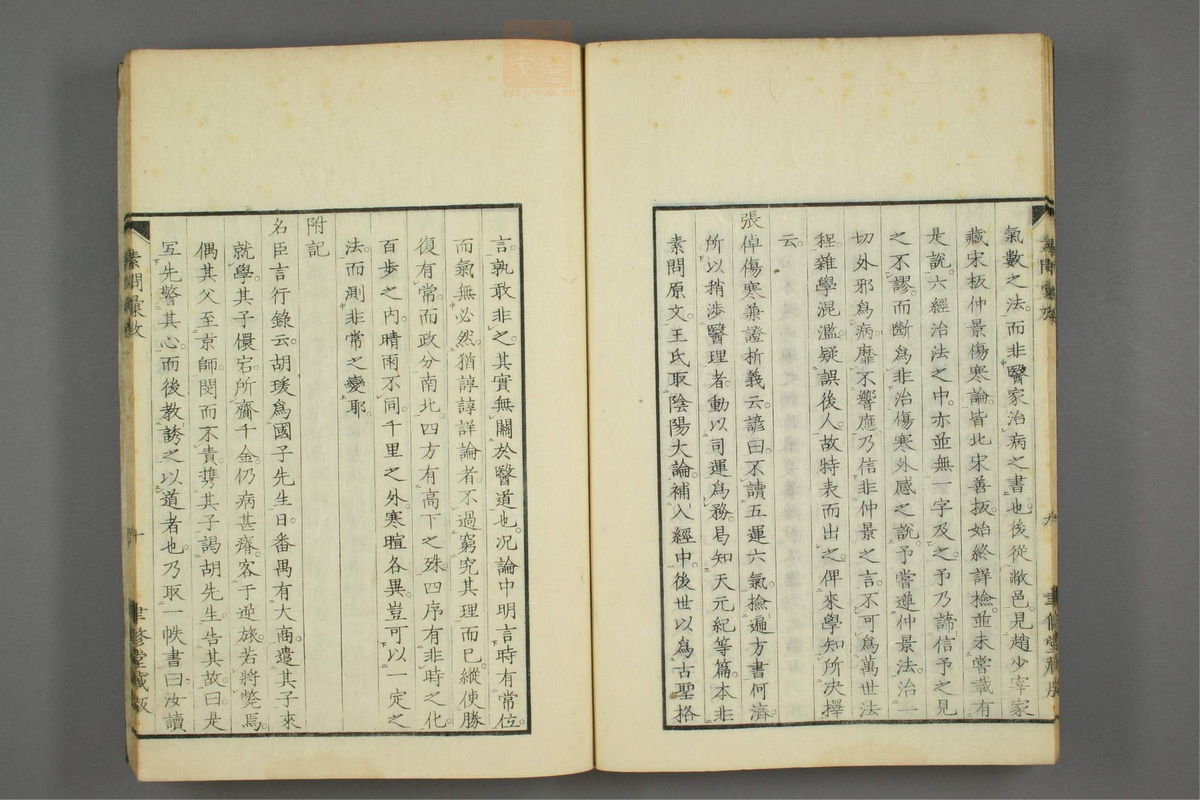 氣數之法。而非醫家治病之書也。後從敝邑。見趙少宰家
藏宋板仲景傷寒論。皆北宋善板。始終詳檢。並未嘗載有
是說。六經治法之中。亦並無一字及之。予乃諦信予之見
之不謬。而斷爲非治傷寒外感之說。予嘗遵仲景法。治一
切外邪爲病。靡不響應。乃信非仲景之言。不可爲萬世法
程。雜學混濫。疑誤後人。故特表而出之。俾來學知所決擇
云。
張倬傷寒兼證析義云。諺曰。不讀五運六氣。撿遍方書何濟。
所以稍渉醫理者。動以司運爲務。曷知天元紀等篇。本非
素問原文。王氏取陰陽大論。補入經中。後世以爲古聖格
言。孰敢非之。其實無關於醫道也。況論中明言。時有常位。
而氣無必然。猶諄諄詳論者。不過窮究其理而已。縱使勝
復有常。而政分南北。四方有高下之殊。四序有非時之化。
百步之內。晴雨不同。千里之外。寒暄各異。豈可以一定之
法。而測非常之變耶。
附記
名臣言行錄云。胡瑗爲國子先生日。番禺有大商。遣其子來
就學。其子儇宕。所齎千金。仍病甚瘠。客于逆旅。若將斃焉。
偶其父至京師。閔而不責。携其子。謁胡先生。告其故。曰。是
冝先警其心。而後教誘之以道者也。乃取一帙書曰。汝讀
素問彙攷
十
聿修堂藏板
九